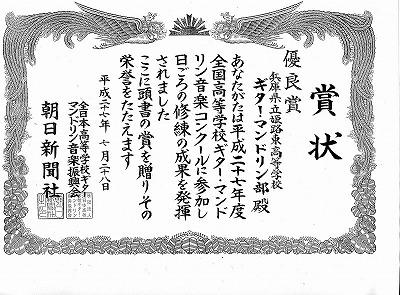 賞状
優良賞
兵庫県立姫路東高等学校
ギター・マンドリン部 殿
あなたがたは平成二十七年度
全国高等学校ギター・マンド
リン音楽コンクールに参加し
日ごろの修練の成果を発揮
されました
ここに頭書の賞を贈りその
栄誉をたたえます
平成二十七年 七月二十八日
全日本高等学校ギター
マンドリン音楽振興会
朝日新聞社